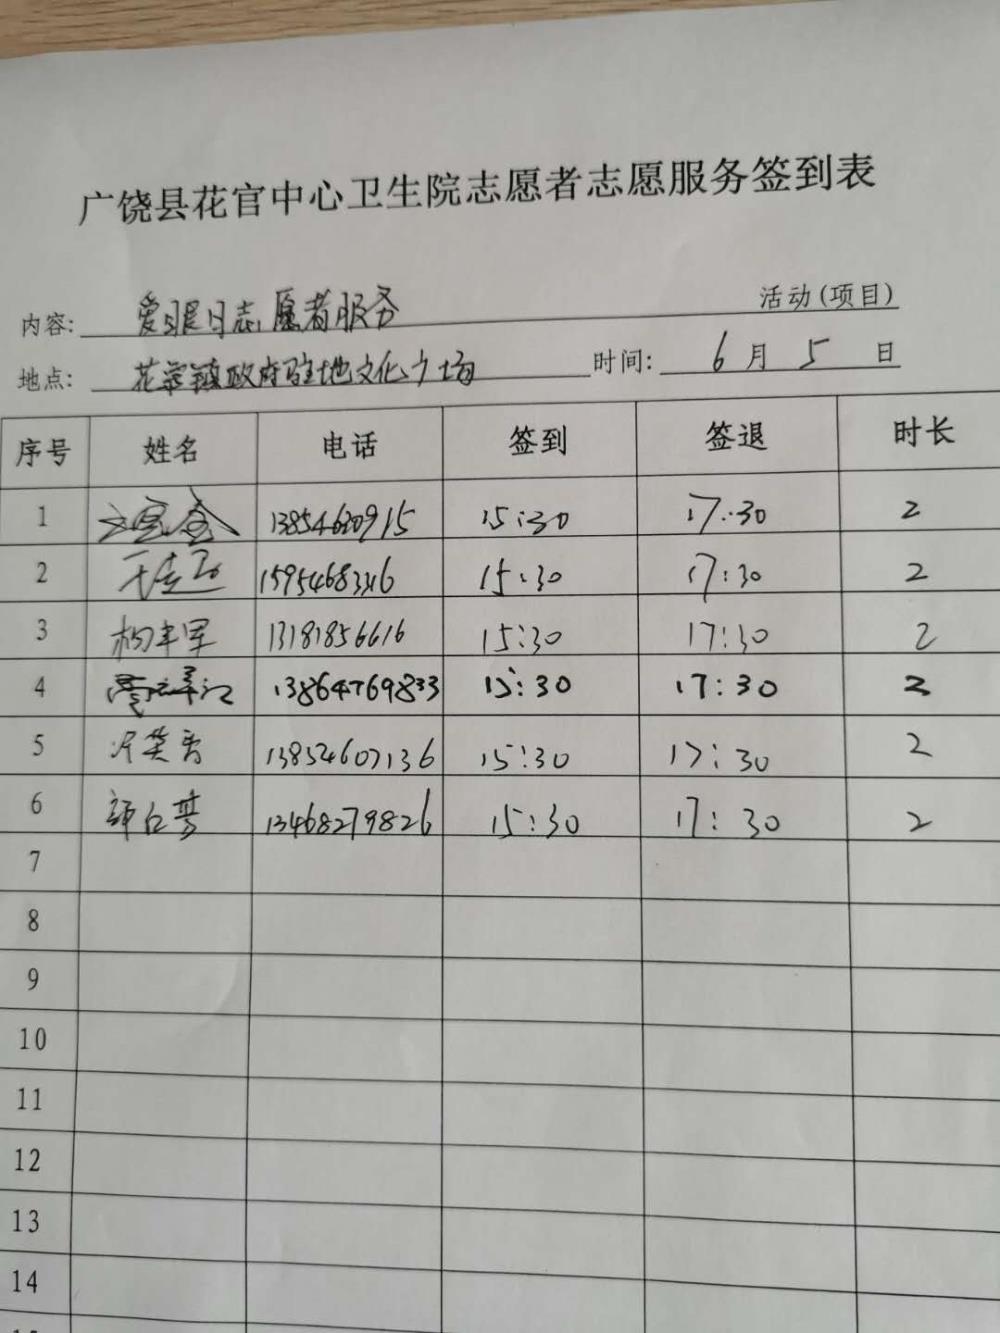 广饶县花官中心卫生院志愿者志愿服务签到表
内容: 爱眼日志愿者服务 活动(项目)
地点: 花官镇政府驻地文化广场 时间: 6 月 5 日
序号 姓名 电话 签到 签退 时长
1 13854620915 15:30 17:30 2
2 15:30 17:30 2
3 13181856616 15:30 17:30 2
4 13864769833 15:30 17:30 2
5 13854607136 15:30 17:30 2
6 13468279826 15:30 17:30 2
7
8
9
10
11
12
13
14